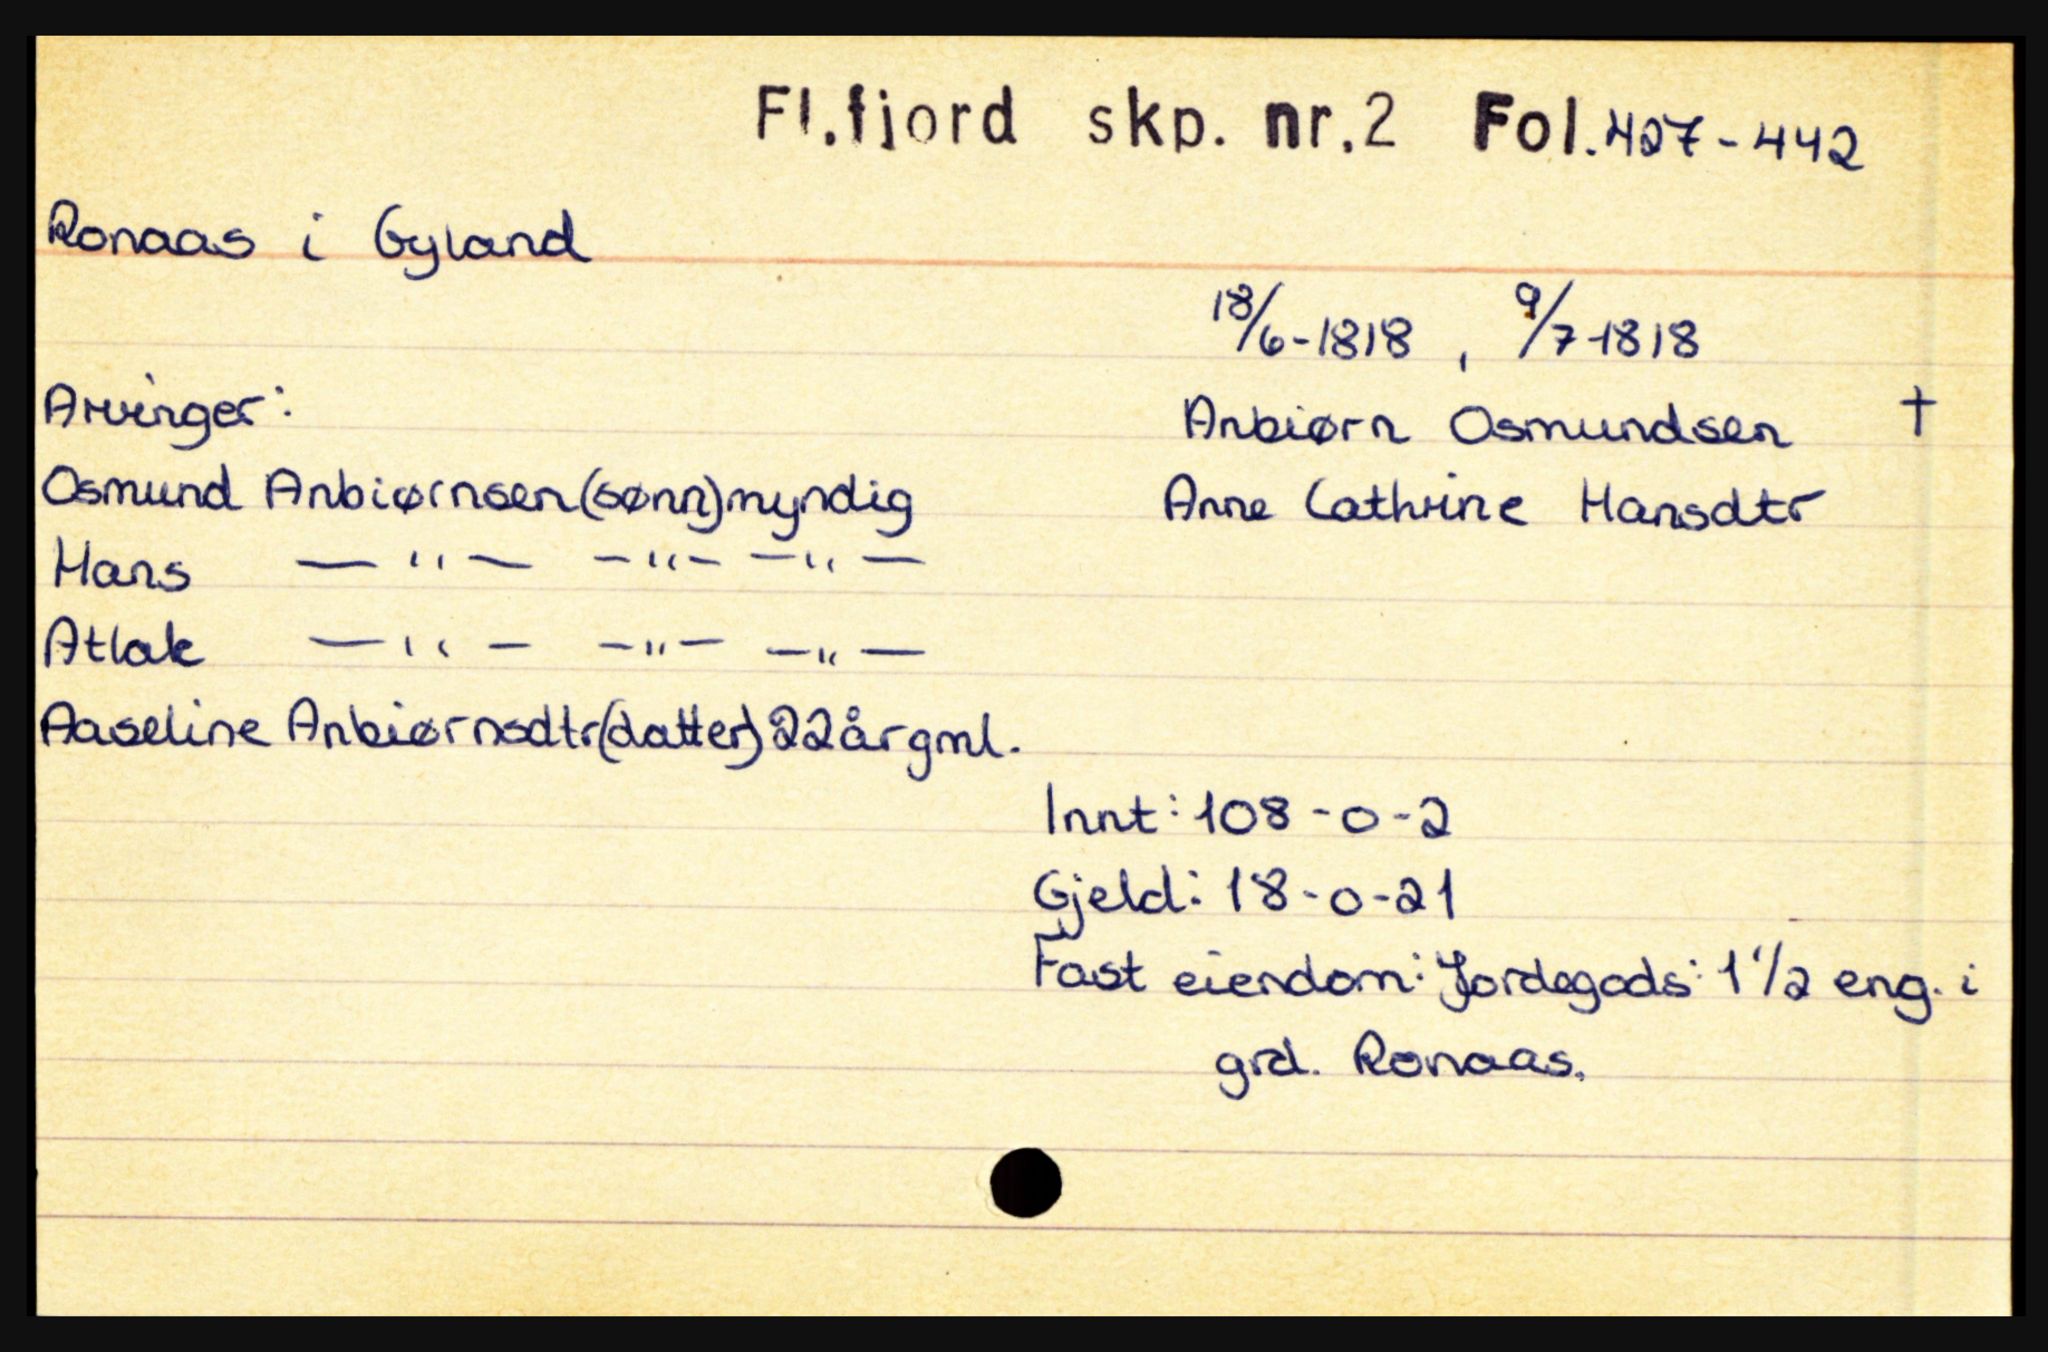 Fl.fjord skp. nr.2 Fol.427-442
Ronaas i Gyland
18/6-1818 , 9/7-1818
Arvinger:
Anbiørn Osmundsen †
Osmund Anbiørnsen (sønn) myndig
Anne Cathrine Hansdtr
Hans —"— —"— —"—
Atlak —"— —"— —"—
Aaseline Anbiørnsdtr (datter) 22 år gml.
Innt: 108-0-2
Gjeld: 18-0-21
Fast eiendom: Jordegods: 1 1/2 eng. i
grd. Ronaas.